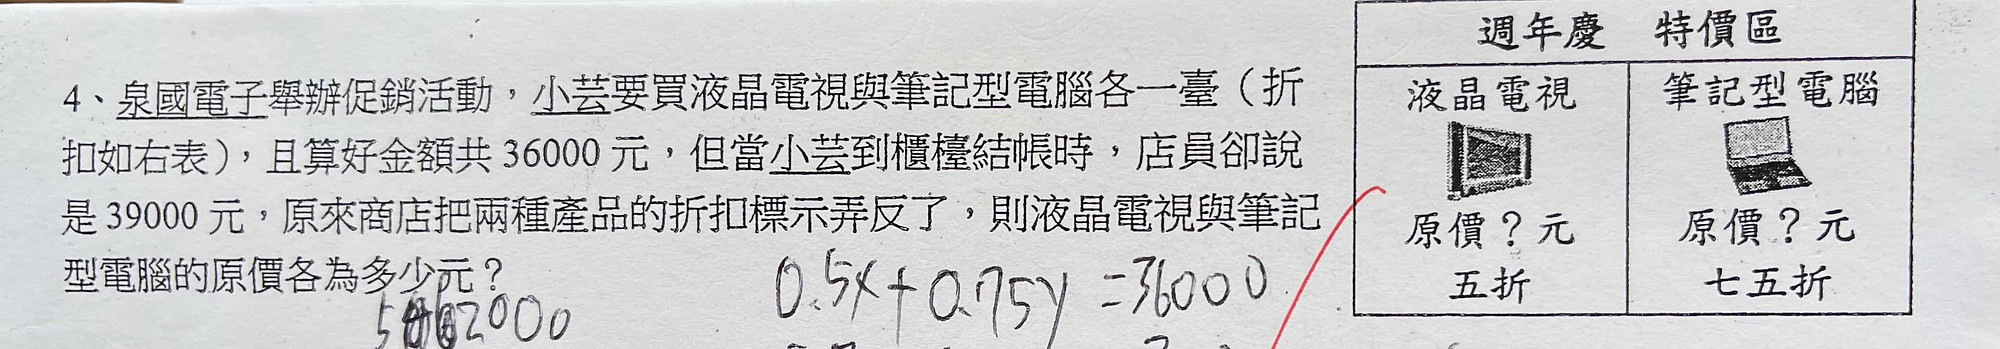 週年慶 特價區
液晶電視 筆記型電腦
原價？元 原價？元
五折 七五折
4、泉國電子舉辦促銷活動，小芸要買液晶電視與筆記型電腦各一臺（折
扣如右表），且算好金額共 36000 元，但當小芸到櫃檯結帳時，店員卻說
是 39000 元，原來商店把兩種產品的折扣標示弄反了，則液晶電視與筆記
型電腦的原價各為多少元？
0.5x+0.75y=36000